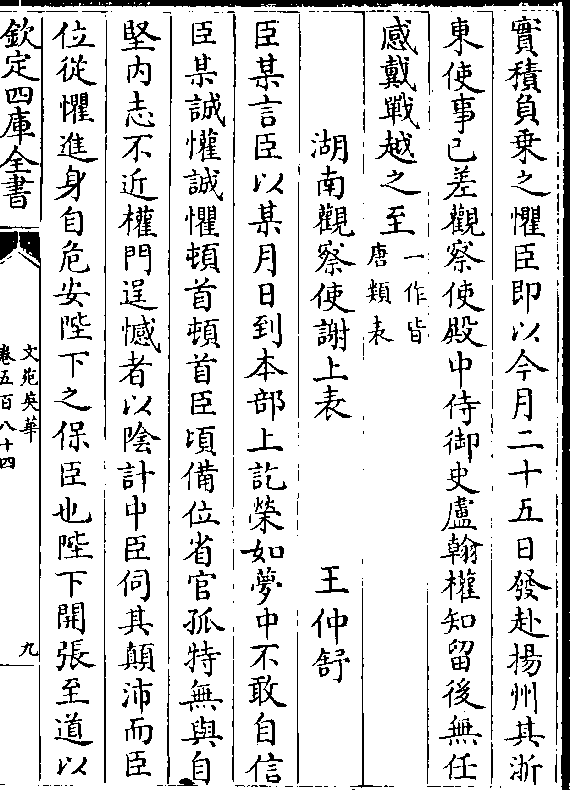 實積負乗之懼臣即以今月二十五日發赴揚州其浙
東使事已差觀察使殿中侍御史盧翰權知留後無任
感戴戰越之至一作皆
唐類表
湖南觀察使謝上表 王仲舒
臣某言臣以某月日到本部上訖榮如夢中不敢自信
臣某誠懽誠懼頓首頓首臣頃備位省官孤特無與自
堅内志不近權門逞憾者以陰計中臣伺其顛沛而臣
位從懼進身自危安陛下之保臣也陛下開張至道以
欽定四庫全書
文苑英華
卷五百八十四
九